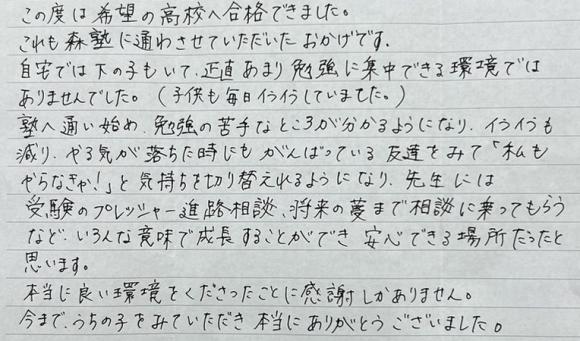 この度は希望の高校へ合格できました。
これも森塾に通わさせていただいたおかげです。
自宅では下の子もいて、正直あまり勉強に集中できる環境では
ありませんでした。(子供も毎日イライラしていました。)
塾へ通い始め、勉強の苦手なところが分かるようになり、イライラも
減り、やる気が落ちた時にもがんばっている友達をみて「私も
やらなきゃ!」と気持ちを切り替えれるようになり、先生には
受験のプレッシャー、進路相談、将来の夢まで相談に乗ってもらう
など、いろんな意味で成長することができ安心できる場所だったと
思います。
本当に良い環境をくださったことに感謝しかありません。
今まで、うちの子をみていただき本当にありがとうございました。